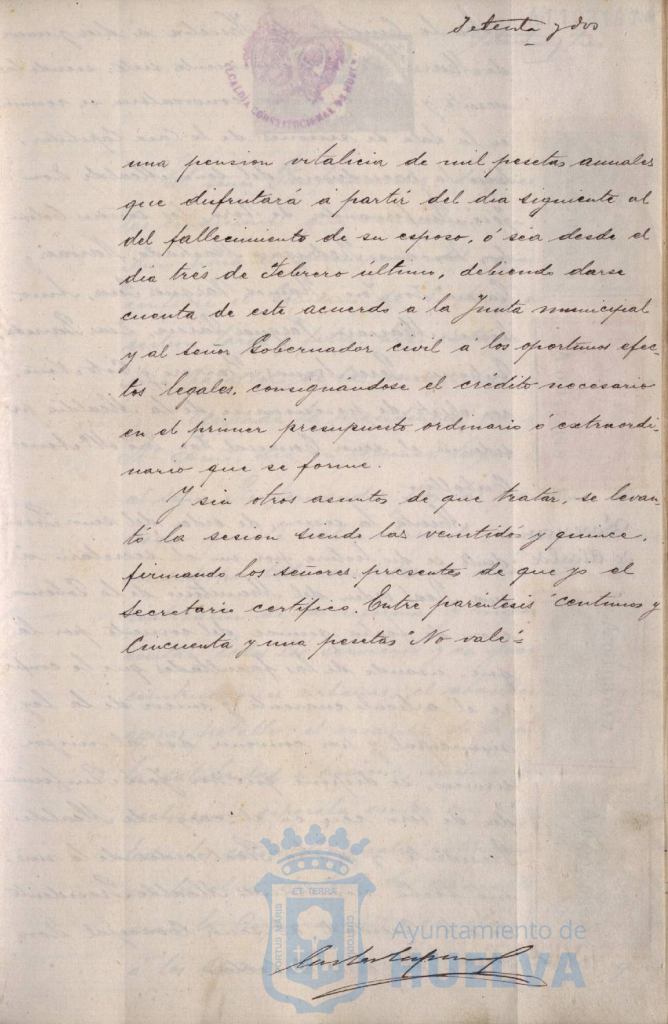 Setenta y dos
ALCALDIA CONSTITUCIONAL DE HUELVA
una pension vitalicia de mil pesetas anuales
que disfrutará á partir del dia siguiente al
del fallecimiento de su esposo, ó sea desde el
dia trés de Febrero último, debiendo darse
cuenta de este acuerdo á la Junta municipal
y al señor Gobernador civil á los oportunos efec-
tos legales, consignándose el crédito necesario
en el primer presupuesto ordinario ó extraordi-
nario que se forme.
Y sin otros asuntos de que tratar, se levan-
tó la sesion siendo las veintidós y quince,
firmando los señores presentes de que yo el
Secretario certifico. Entre paréntesis "centimos y
Cincuenta y una pesetas "No vale"=
ET TERRA
PORTUS MARIS
CUSTODIA
Ayuntamiento de
HUELVA